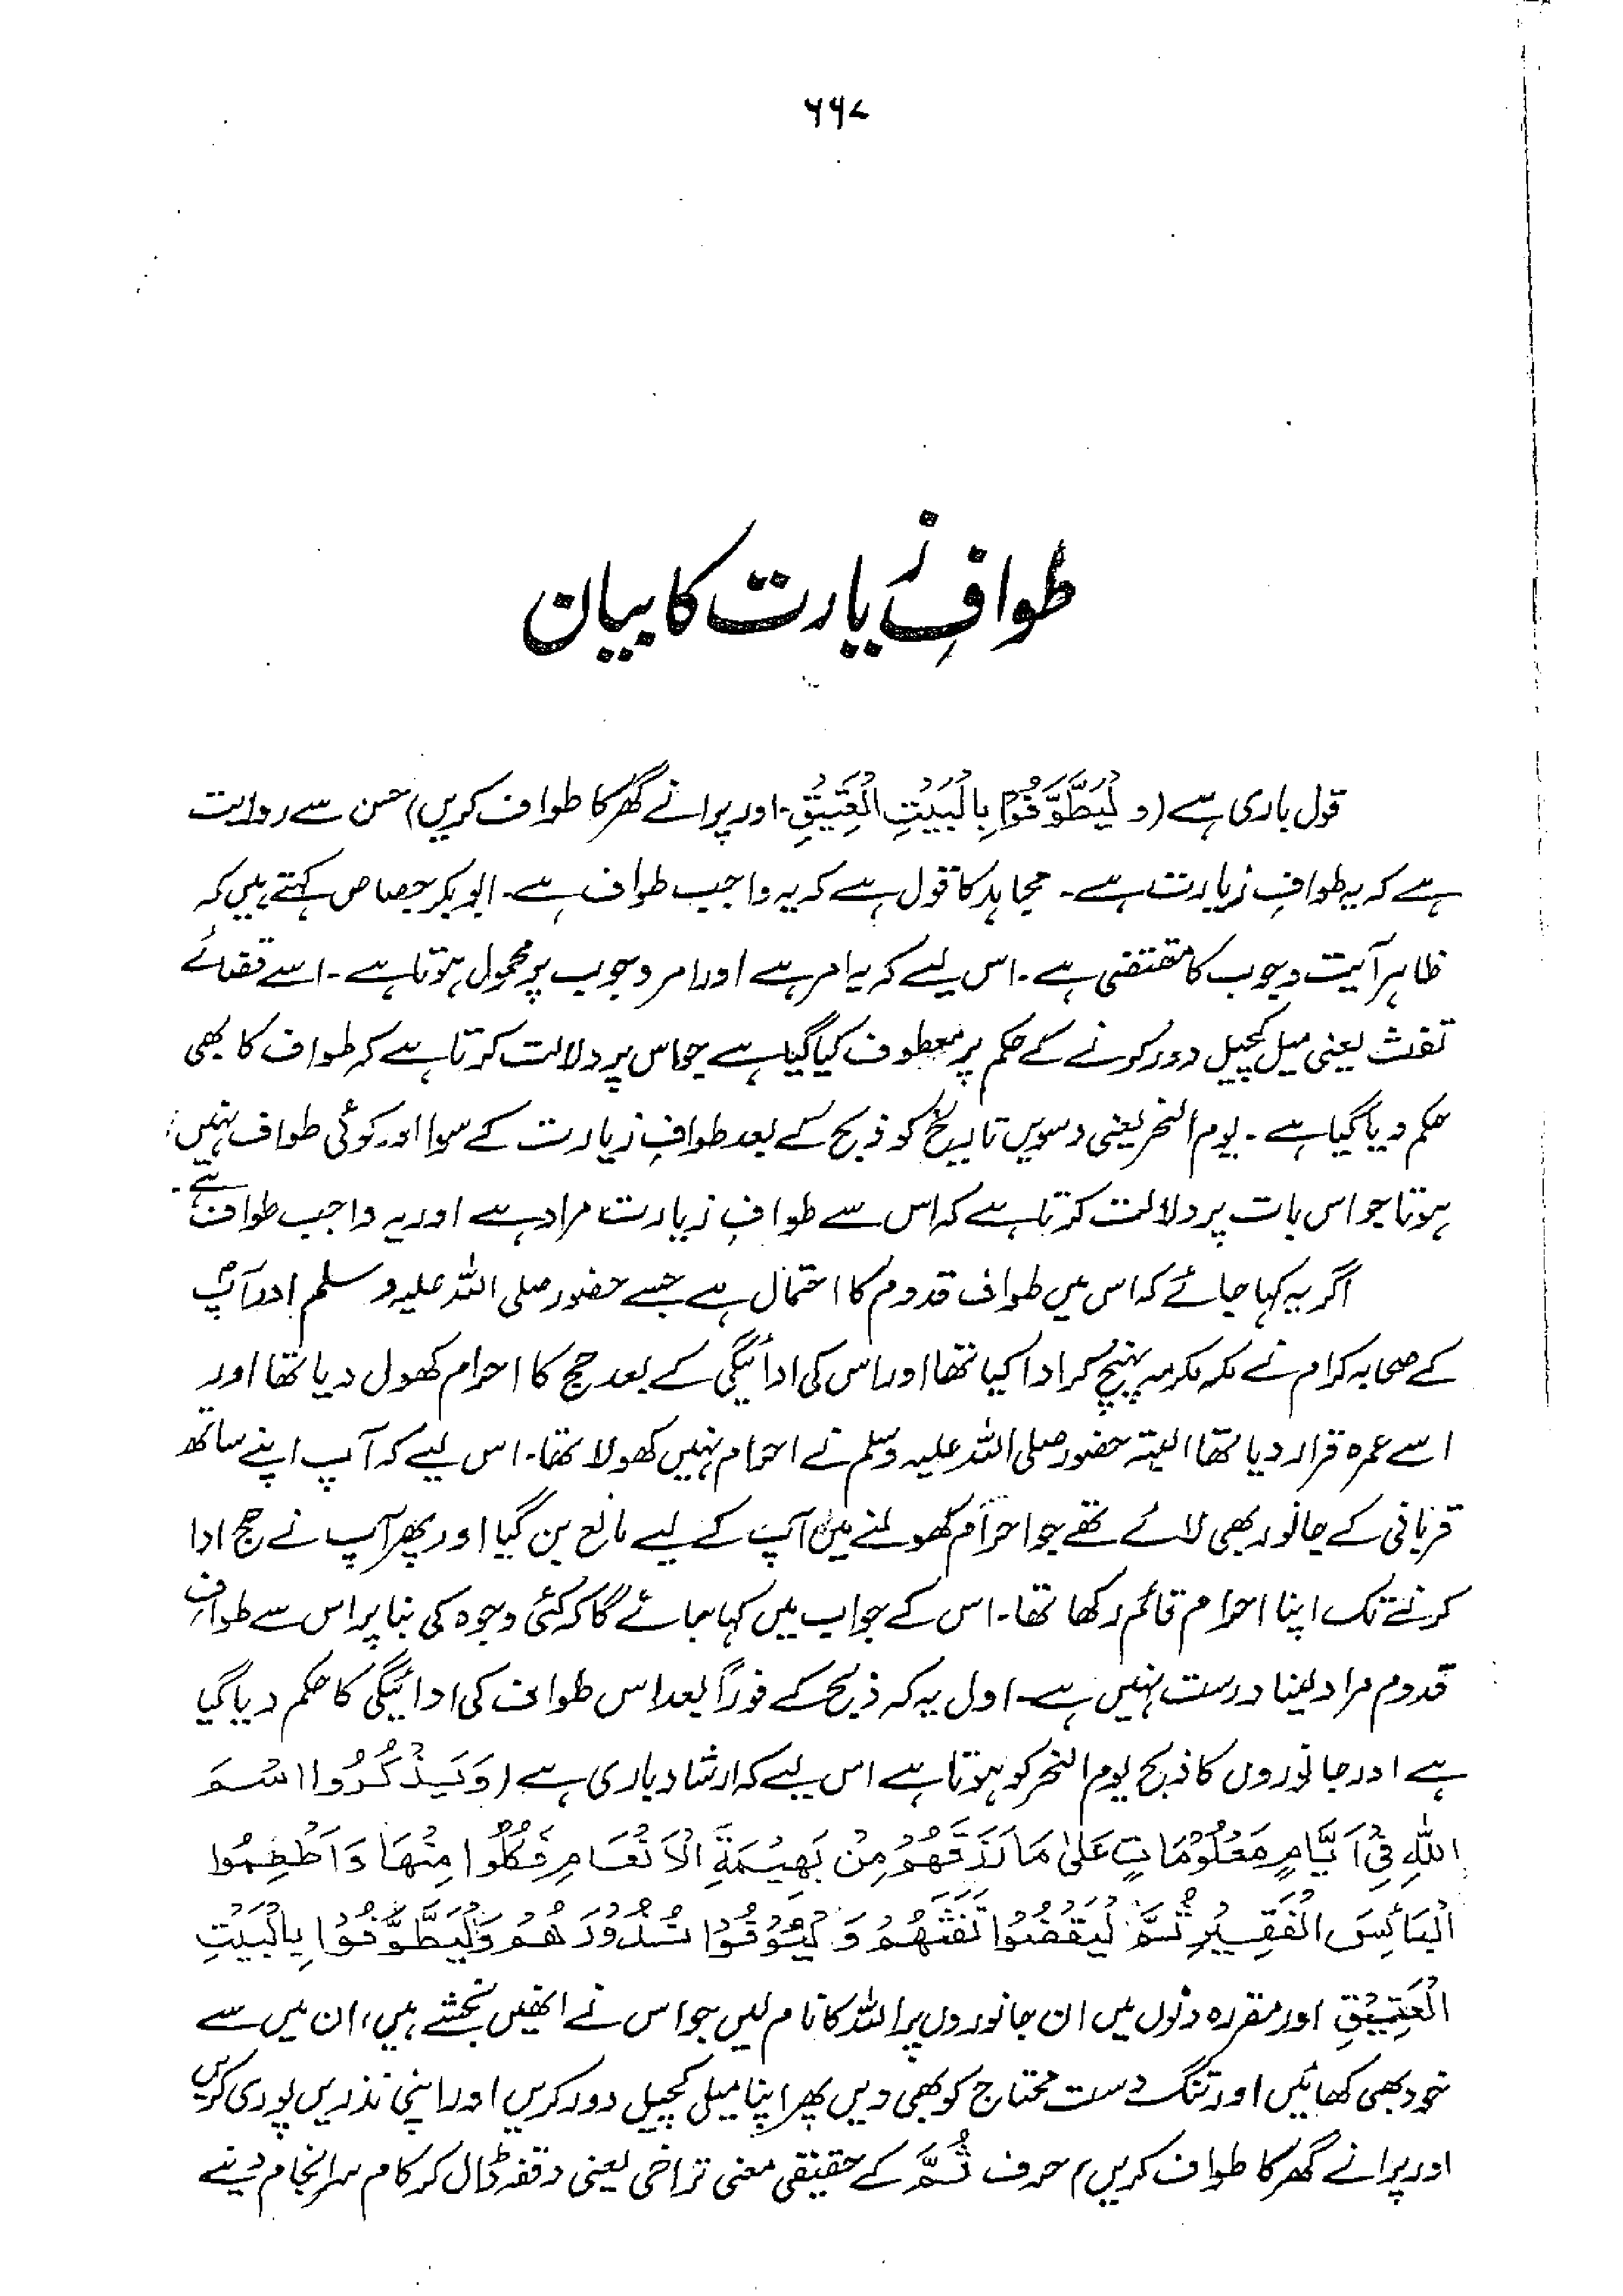 ۶۶۷
طوافِ زیارت کا بیان
قول باری ہے (وَلْيَطَّوَّفُوْا بِالْبَيْتِ الْعَتِيْقِ۔ اور پرانے گھر کا طواف کریں) حسن سے روایت
ہے کہ یہ طوافِ زیارت ہے۔ مجاہد کا قول ہے کہ یہ واجب طواف ہے۔ ابوبکر جصاص کہتے ہیں کہ
ظاہر آیت وجوب کا مقتضی ہے۔ اس لیے کہ یہ امر ہے اور امر وجوب پر محمول ہوتا ہے۔ اسے قضائے
تفث یعنی میل کچیل دور کرنے کے حکم پر معطوف کیا گیا ہے جو اس پر دلالت کرتا ہے کہ طواف کا بھی
حکم دیا گیا ہے۔ یوم النحر یعنی دسویں تاریخ کو ذبح کے بعد طوافِ زیارت کے سوا اور کوئی طواف نہیں
ہوتا جو اس بات پر دلالت کرتا ہے کہ اس سے طوافِ زیارت مراد ہے اور یہ واجب طواف ہے۔
اگر یہ کہا جائے کہ اس میں طواف قدوم کا احتمال ہے جسے حضور صلی اللہ علیہ وسلم اور آپؐ
کے صحابہ کرام نے مکہ مکرمہ پہنچ کر ادا کیا تھا اور اس کی ادائیگی کے بعد حج کا احرام کھول دیا تھا اور
اسے عمرہ قرار دیا تھا البتہ حضور صلی اللہ علیہ وسلم نے احرام نہیں کھولا تھا۔ اس لیے کہ آپ اپنے ساتھ
قربانی کے جانور بھی لائے تھے جو احرام کھولنے میں آپ کے لیے مانع بن گیا اور پھر آپ نے حج ادا
کرنے تک اپنا احرام قائم رکھا تھا۔ اس کے جواب میں کہا جائے گا کہ کئی وجوہ کی بنا پر اس سے طوافِ
قدوم مراد لینا درست نہیں ہے۔ اول یہ کہ ذبح کے فوراً بعد اس طواف کی ادائیگی کا حکم دیا گیا
ہے اور جانوروں کا ذبح یوم النحر کو ہوتا ہے اس لیے کہ ارشاد باری ہے (وَيَذْكُرُوا اسْمَ
اللّٰهِ فِيْ اَيَّامٍ مَعْلُوْمَاتٍ عَلٰى مَا رَزَقَهُمْ مِنْ بَهِيْمَةِ الْاَنْعَامِ فَكُلُوْا مِنْهَا وَاَطْعِمُوا
الْبَائِسَ الْفَقِيْرَ ثُمَّ لْيَقْضُوْا تَفَثَهُمْ وَلْيُوْفُوْا نُذُوْرَهُمْ وَلْيَطَّوَّفُوْا بِالْبَيْتِ
الْعَتِيْقِ اور مقررہ دنوں میں ان جانوروں پر اللہ کا نام لیں جو اس نے انھیں بخشے ہیں، ان میں سے
خود بھی کھائیں اور تنگ دست محتاج کو بھی دیں پھر اپنا میل کچیل دور کریں اور اپنی نذریں پوری کریں
اور پرانے گھر کا طواف کریں) حرف ثُمَّ کے حقیقی معنی تراخی یعنی وقفہ ڈال کر کام سرانجام دینے